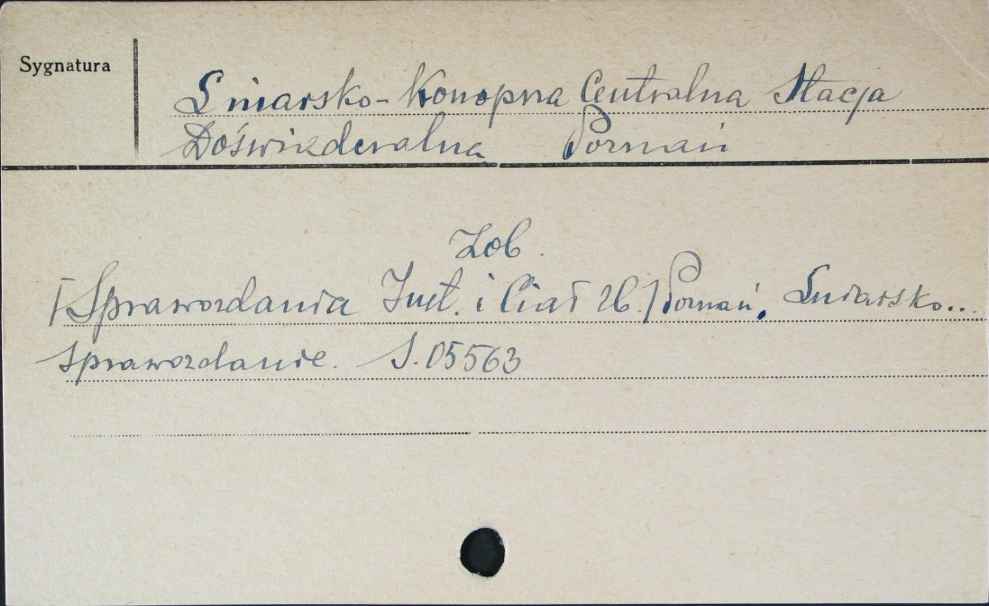 Sygnatura
Lniarsko-Konopna Centralna Stacja
Doświadczalna Poznań
Zob.
[Sprawozdania Inst. i Ciał Zb.] Poznań, Lniarsko...
sprawozdanie. S.05563